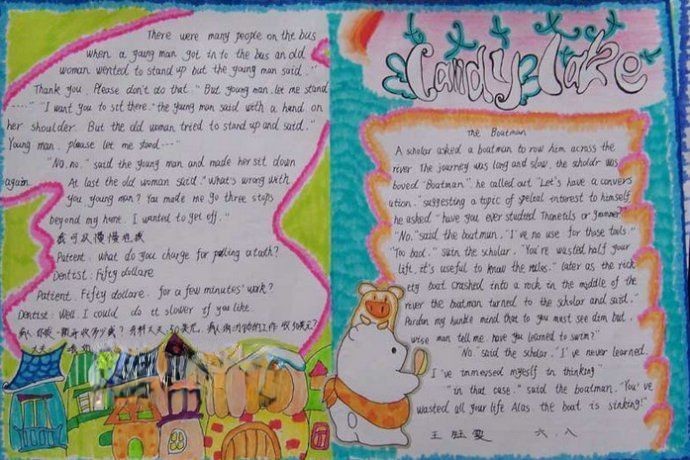 There were many people on the bus
when a young man got in to the bus an old
woman wented to stand up but the young man said."
Thank you. Please don't do that." But young man, let me stand
....." "I want you to sit there." the young man said with a hand on
her shoulder. But the old woman tried to stand up and said."
Young man, please let me stand...."
"No, no." said the young man and made her set down
again. At last the old woman said "What's wrong with
you young man? You made me go three stops
beyond my home. I wanted to get off."
我可以慢慢
Patient. what do you charge for pulling a tooth?
Dentist: Fifty dollare
Patient. Fifty dollare. for a few minutes' work?
Dentist: Well. I could do it slower if you like.
Candy Take
the Boatman
A scholar asked a boatman to row him across the
river The journey was long and slow, the scholar was
boved "Boatman". he called out "Let's have a convers
ution. suggesting a topic of speical interest to himself
he asked "have you ever studied or
"No." said the boatman. "I've no use for those tools."
"Too bad." said the scholar. "You're wasted half your
life. it's useful to know the rules." later as the rick
ety boat crashed into a rock in the middle of the
river the boatman turned to the scholar and said."
Pardon my hunble mind that to you must see dim but.
wise man tell me. have you learned to swim?"
"No." said the scholar. "I've never learned.
I've immersed myself in thinking"
"in that case." said the boatman. "You've
wasted all your life Alas the boat is sinking!"
王 雯 六.八